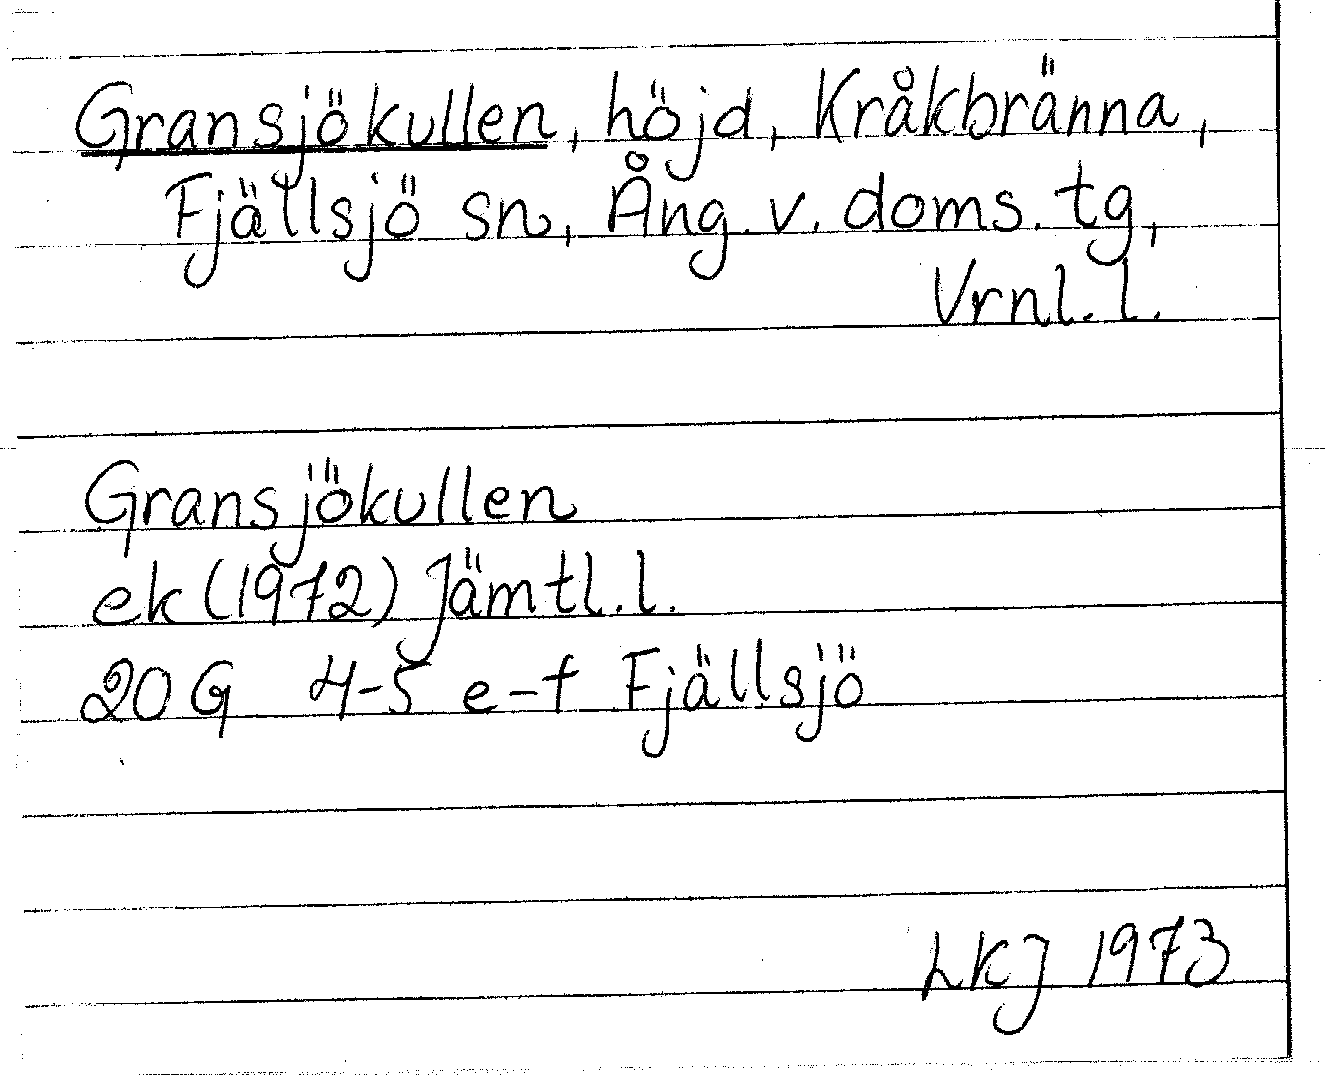 Gransjökullen, höjd, Kråkbränna,
Fjällsjö sn, Ång. v. doms. tg,
Vrnl. l.
Gransjökullen
ek (1972) Jämtl. l.
20 G 4-5 e-f Fjällsjö
LKJ 1973